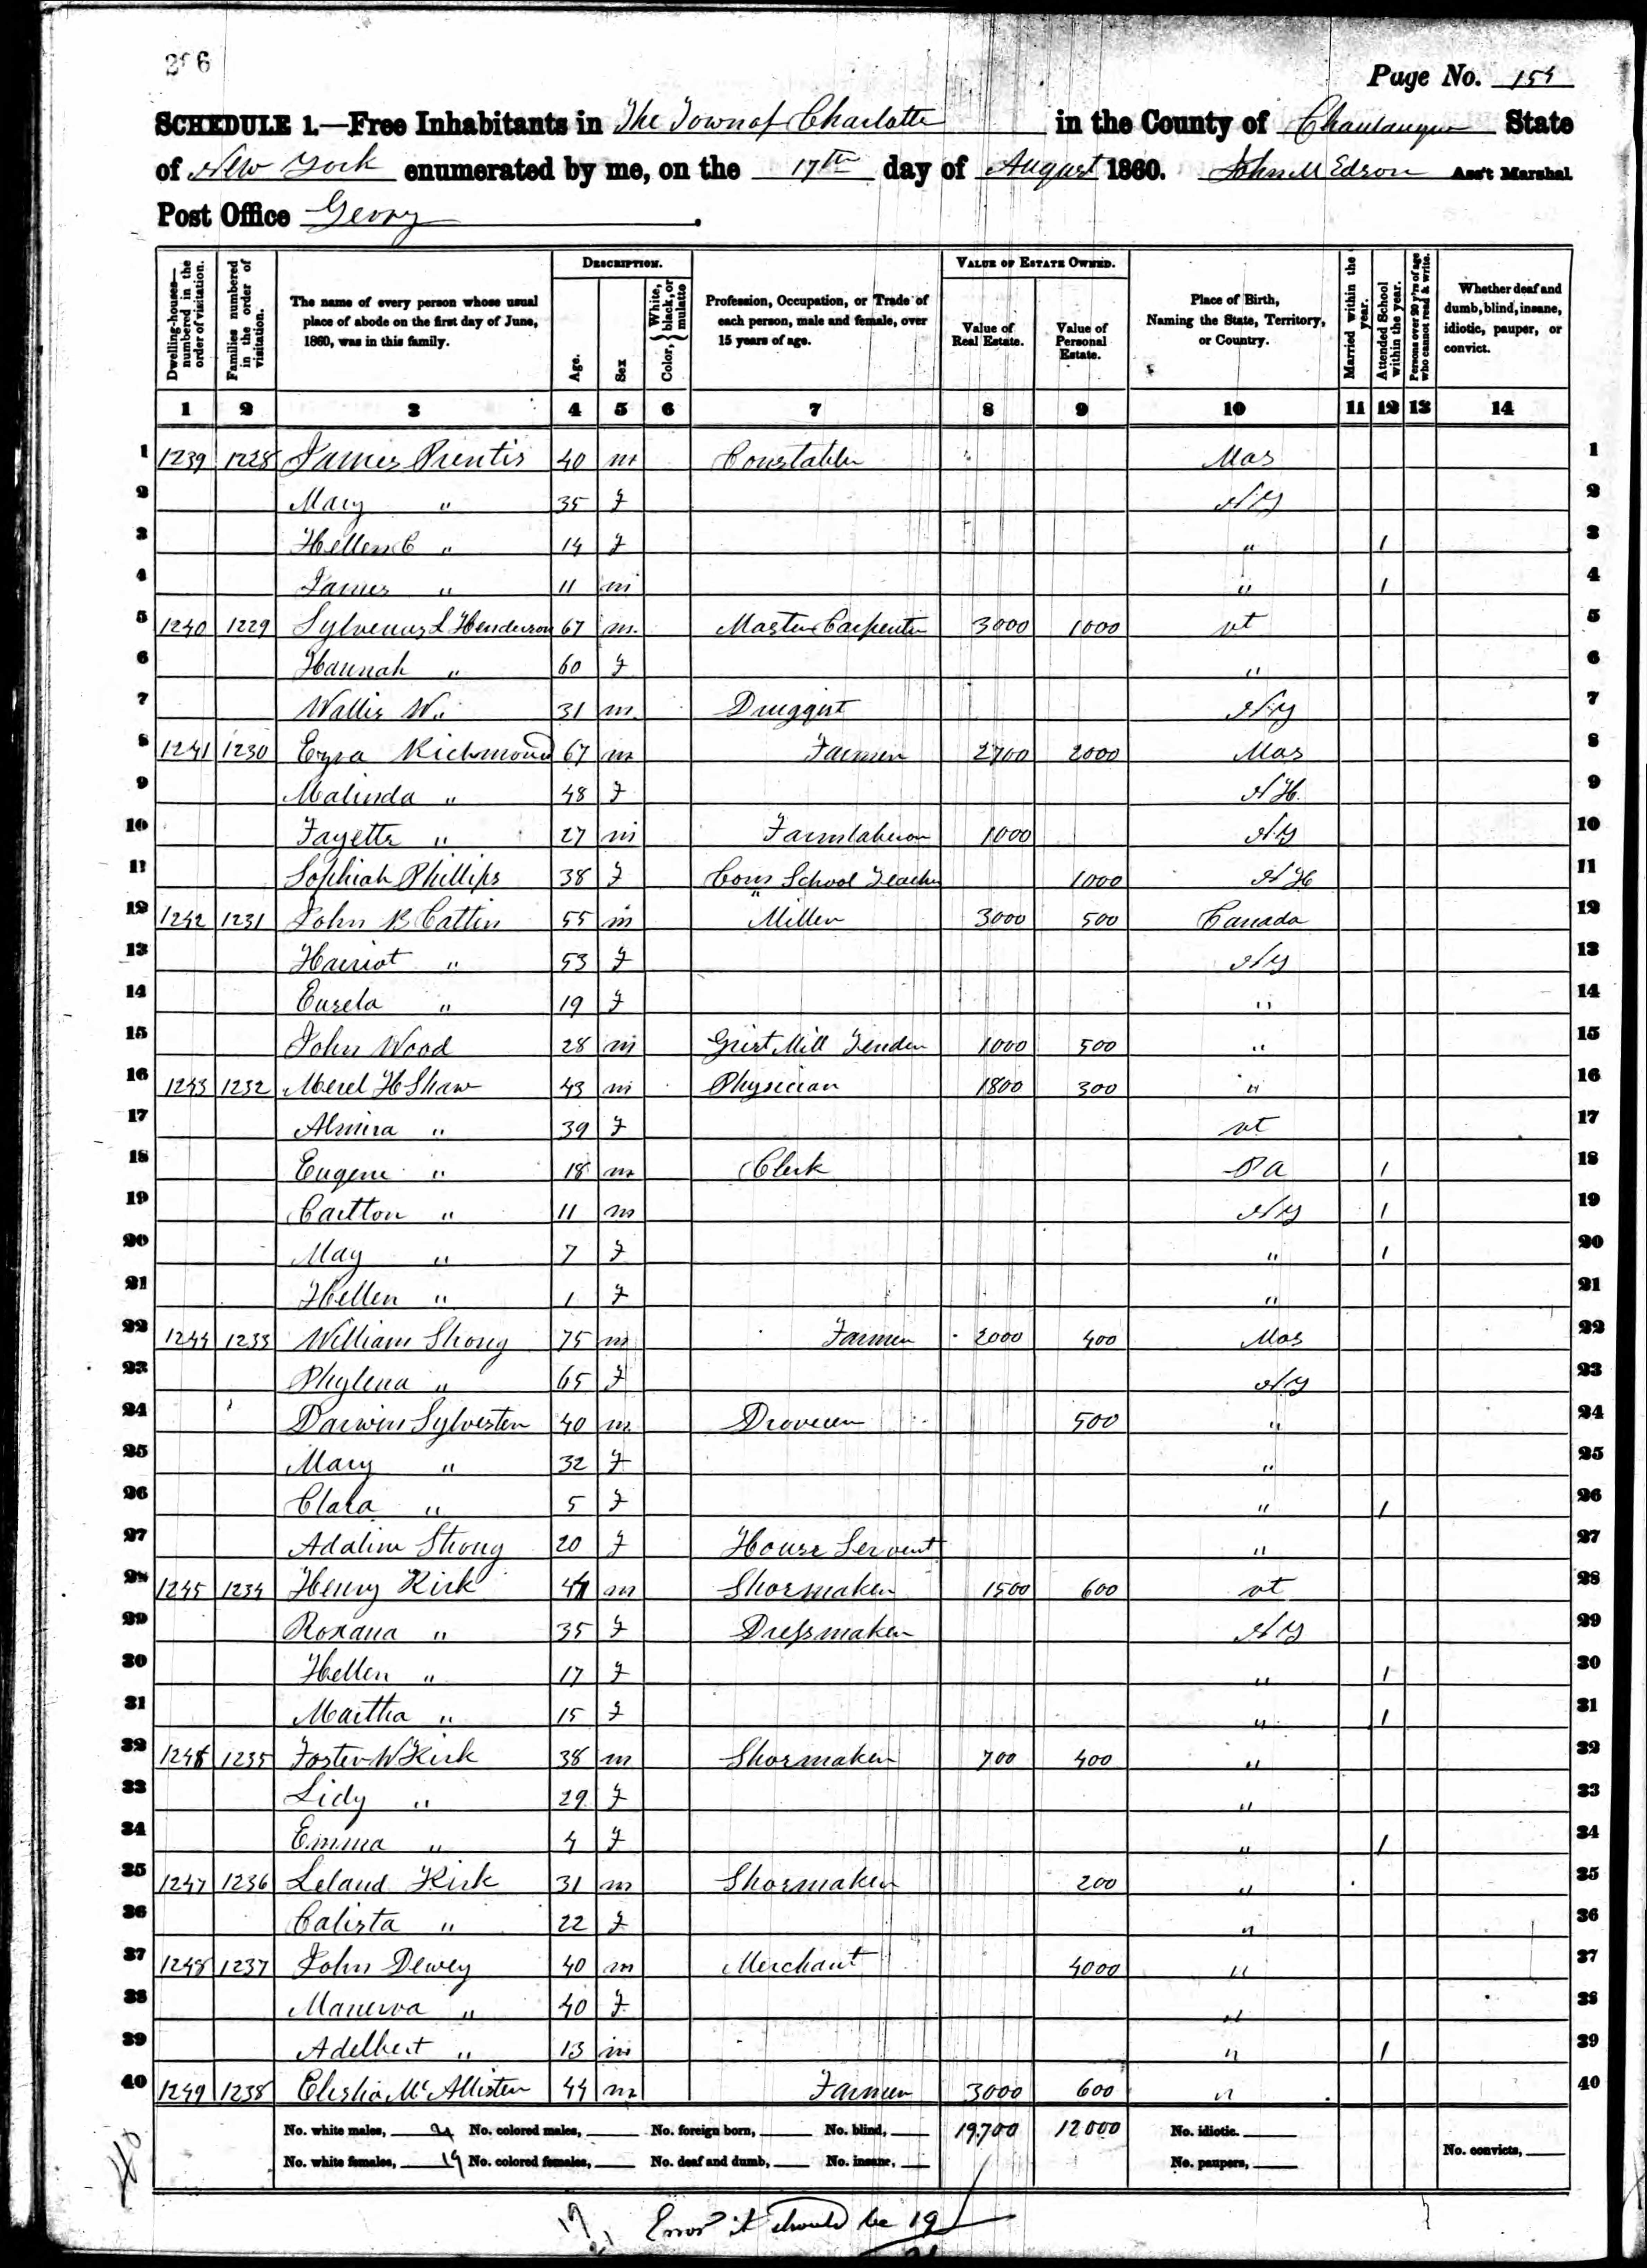 Page No. 154
SCHEDULE 1.—Free Inhabitants in The Town of Charlotte in the County of Chautauque State
of New York enumerated by me, on the 17th day of August 1860. John M Edson Ass't Marshal
Post Office Gerry.
Dwelling-houses—numbered in the order of visitation. Families numbered in the order of visitation. The name of every person whose usual place of abode on the first day of June, 1860, was in this family. DESCRIPTION. Age. Sex Color, White, black, or mulatto Profession, Occupation, or Trade of each person, male and female, over 15 years of age. VALUE OF ESTATE OWNED. Value of Real Estate. Value of Personal Estate. Place of Birth, Naming the State, Territory, or Country. Married within the year. Attended School within the year. Persons over 20 y'rs of age who cannot read & write. Whether deaf and dumb, blind, insane, idiotic, pauper, or convict.
1 2 3 4 5 6 7 8 9 10 11 12 13 14
1 1239 1228 James Prentis 40 m Constable Mas 1
2 Mary " 35 F NY 2
3 Hellen C " 14 F " 1 3
4 James " 11 m " 1 4
5 1240 1229 Sylvenus L Henderson 67 m Master Carpenter 3000 1000 vt 5
6 Hannah " 60 F " 6
7 Wallis W " 31 m Druggist NY 7
8 1241 1230 Ezra Richmond 67 m Farmer 2700 2000 Mas 8
9 Malinda " 48 F NH. 9
10 Fayette " 27 m Farm laberor 1000 NY 10
11 Sophiah Phillips 38 F Com School Teacher 1000 NH 11
12 1242 1231 John B Cattin 55 m " Miller 3000 500 Canada 12
13 Harriot " 53 F NY 13
14 Eusela " 19 F " 14
15 John Wood 28 m Grist Mill Tender 1000 500 " 15
16 1243 1232 Merel H Shaw 43 m Physician 1800 300 " 16
17 Almira " 39 F vt 17
18 Eugene " 18 m Clerk PA 1 18
19 Carlton " 11 m NY 1 19
20 May " 7 F " 1 20
21 Hellen " 1 F " 21
22 1244 1233 William Strong 75 m Farmer 2000 400 Mas 22
23 Phylena " 65 F NY 23
24 Darwin Sylvester 40 m Drover 500 " 24
25 Mary " 32 F " 25
26 Clara " 5 F " 1 26
27 Adaline Strong 20 F House Servent " 27
28 1245 1234 Henry Kirk 41 m Shoemaker 1500 600 vt 28
29 Roxana " 35 F Dressmaker NY 29
30 Hellen " 17 F " 1 30
31 Martha " 15 F " 1 31
32 1246 1235 Foster W Kirk 38 m Shoemaker 700 400 " 32
33 Lidy " 29 F " 33
34 Emma " 4 F " 1 34
35 1247 1236 Leland Kirk 31 m Shoemaker 200 " 35
36 Calista " 22 F " 36
37 1248 1237 John Dewey 40 m Merchant 4000 " 37
38 Manerva " 40 F " 38
39 Adelbert " 13 m " 1 39
40 1249 1238 Elisha McAllister 44 m Farmer 3000 600 " 40
No. white males, No. colored males, No. foreign born, No. blind, 19,700 12000 No. idiotic.
No. white females, 19 No. colored females, No. deaf and dumb, No. insane, No. paupers, No. convicts,
Error it should be 19